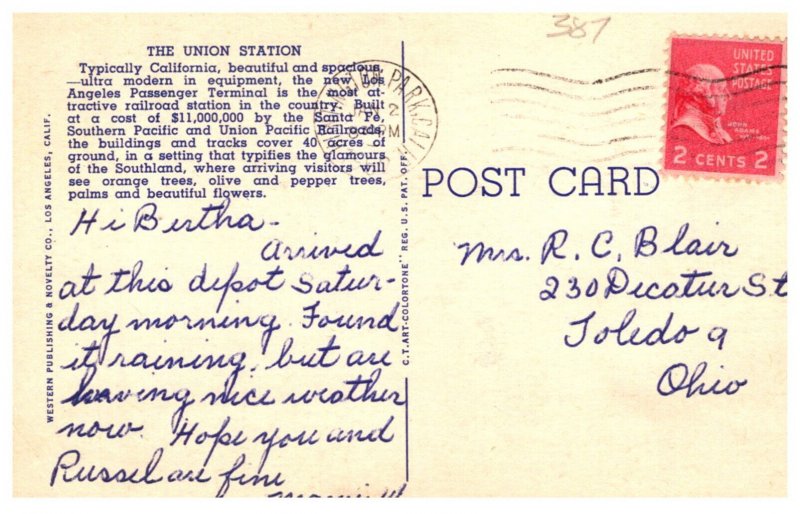 387
THE UNION STATION
Typically California, beautiful and spacious,
—ultra modern in equipment, the new Los
Angeles Passenger Terminal is the most at-
tractive railroad station in the country. Built
at a cost of $11,000,000 by the Santa Fe,
Southern Pacific and Union Pacific Railroads,
the buildings and tracks cover 40 acres of
ground, in a setting that typifies the glamours
of the Southland, where arriving visitors will
see orange trees, olive and pepper trees,
palms and beautiful flowers.
WESTERN PUBLISHING & NOVELTY CO., LOS ANGELES, CALIF.
Hi Bertha -
Arrived
at this depot Satur-
day morning. Found
it raining, but are
having nice weather
now. Hope you and
Russel are fine
C.T. ART-COLORTONE" REG. U.S. PAT. OFF.
PARK, CALIF
2
PM
UNITED
STATES
POSTAGE
JOHN
ADAMS
2 CENTS 2
POST CARD
Mrs. R. C. Blair
230 Decatur St
Toledo 9
Ohio